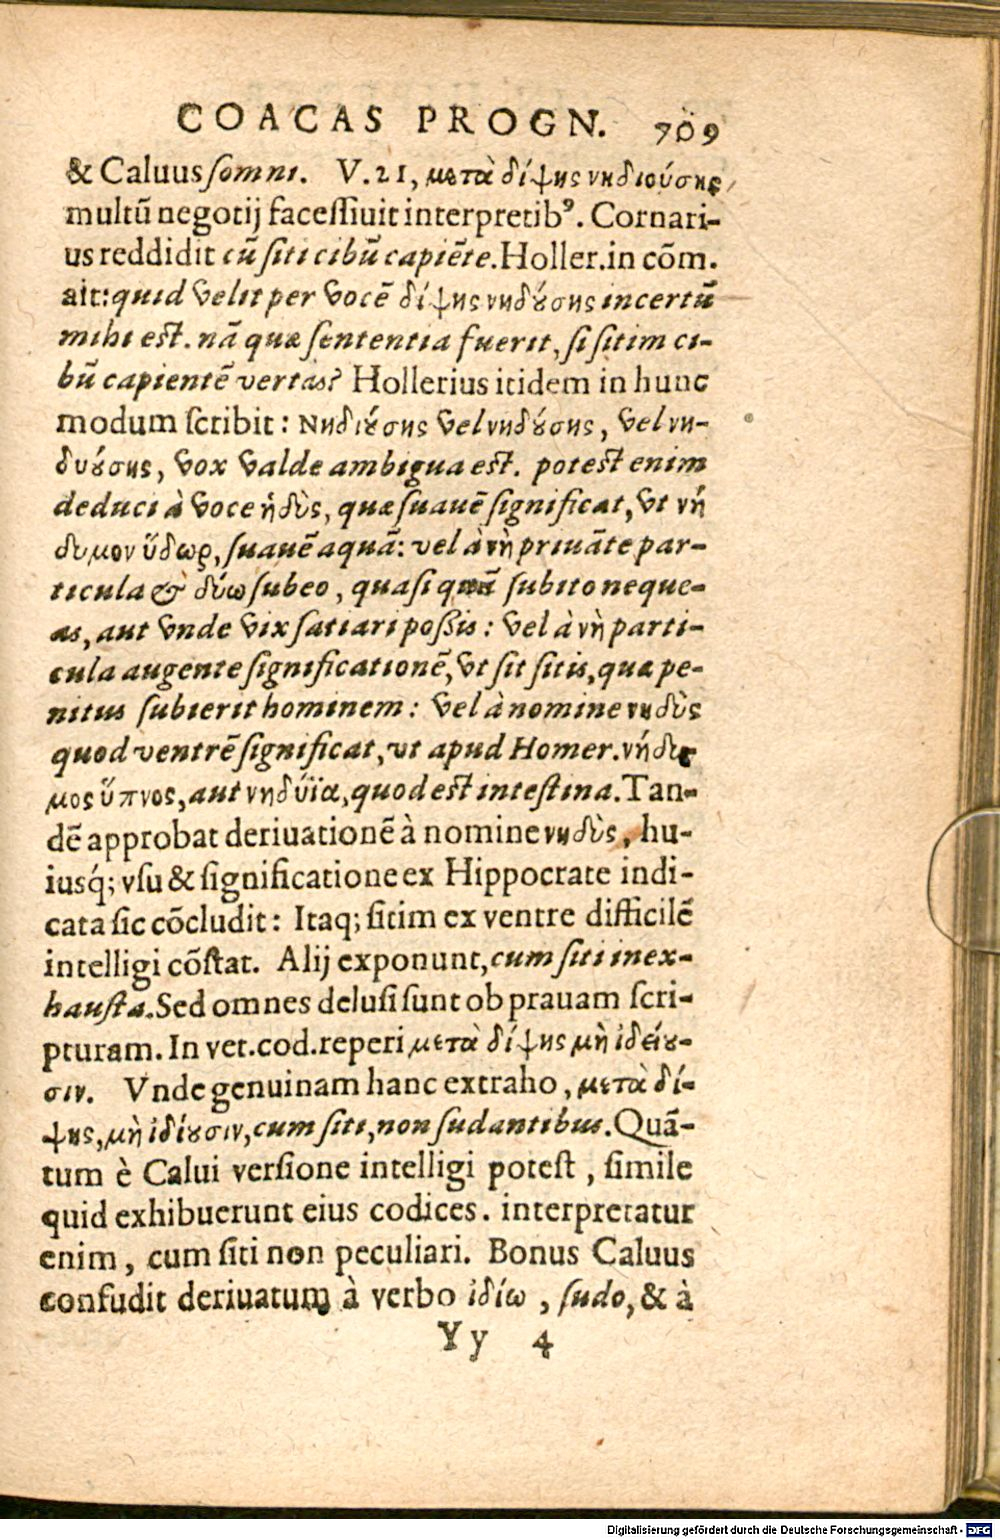 COACAS PROGN. 709
& Caluus ſomni. V. 21, μετὰ δίψης νηδιούσης,
multū negotij faceſſiuit interpretibꝰ. Cornari-
us reddidit cū ſiti cibū capiēte. Holler. in cōm.
ait: quid velit per vocē δίψης νηδȣ́σης incertū
mihi eſt. nā quæ ſententia fuerit, ſi ſitim ci-
bū capientē vertas? Hollerius itidem in hunc
modum ſcribit: Νηδιȣ́σης vel νηδȣ́σης, vel νη-
δυȣ́σης, vox valde ambigua eſt. poteſt enim
deduci à voce ἡδὺς, quæ ſuauē ſignificat, vt νή
δυμον ὕδωρ, ſuauē aquā: vel à νὴ priuāte par-
ticula & δύω ſubeo, quaſi quā ſubito neque-
as, aut vnde vix ſatiari poſsis: vel à νὴ parti-
cula augente ſignificationē, vt ſit ſitis, quæ pe-
nitus ſubierit hominem: vel à nomine νηδὺς
quod ventrē ſignificat, vt apud Homer. νήδυ
μος ὕπνος, aut νηδύϊα, quod eſt inteſtina. Tan-
dē approbat deriuationē à nomine νηδὺς, hu-
iusq́; vſu & ſignificatione ex Hippocrate indi-
cata ſic cōcludit: Itaq; ſitim ex ventre difficilē
intelligi cōſtat. Alij exponunt, cum ſiti inex-
hauſta. Sed omnes deluſi ſunt ob prauam ſcri-
pturam. In vet. cod. reperi μετὰ δίψης μὴ ἰδείȣ-
σιν. Vnde genuinam hanc extraho, μετὰ δί-
ψης, μὴ ἰδίȣσιν, cum ſiti, non ſudantibus. Quā-
tum è Calui verſione intelligi poteſt, ſimile
quid exhibuerunt eius codices. interpretatur
enim, cum ſiti non peculiari. Bonus Caluus
confudit deriuatum à verbo ἰδίω, ſudo, & à
Yy 4
Digitalisierung gefördert durch die Deutsche Forschungsgemeinschaft - DFG